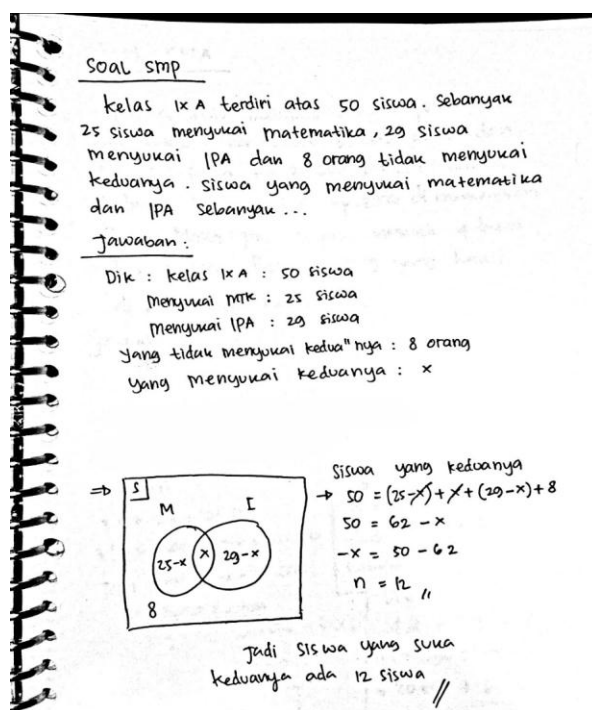 Soal smp
kelas IX A terdiri atas 50 siswa. Sebanyak
25 siswa menyukai matematika, 29 siswa
menyukai IPA dan 8 orang tidak menyukai
keduanya. siswa yang menyukai matematika
dan IPA sebanyak...
Jawaban:
Dik : kelas IX A : 50 siswa
menyukai MTK : 25 siswa
menyukai IPA : 29 siswa
yang tidak menyukai kedua"nya : 8 orang
yang menyukai keduanya : x
Siswa yang keduanya
⇒ S
M I
25-x x 29-x
8
→ 50 = (25-x)+x+(29-x)+8
50 = 62 - x
-x = 50 - 62
n = 12 //
Jadi siswa yang suka
keduanya ada 12 siswa //